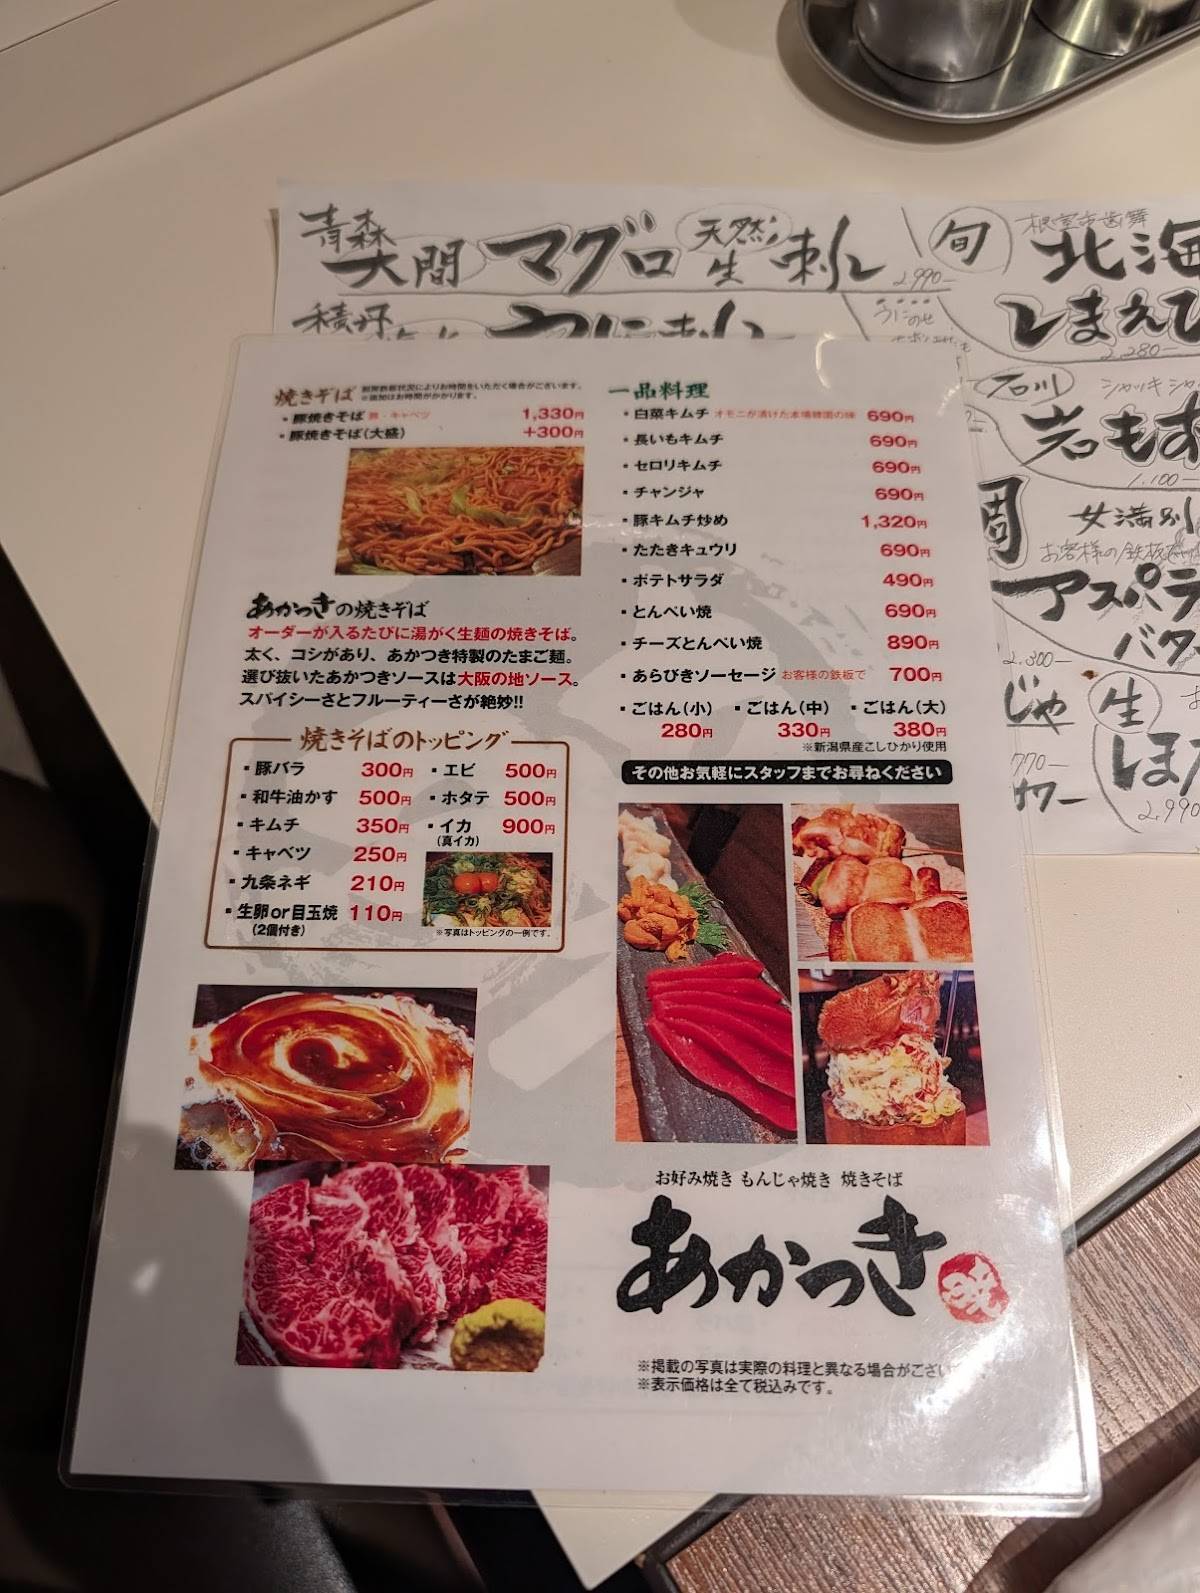 青森
大間 マグロ 天然 生 刺し
2,990-
積丹
旬
根室市歯舞
北海
しまえび
2,280-
うにのせ
石川
岩もず
1,100-
女満別
お客様の鉄板で
アスパラ
バタ
2,300-
じゃ
770-
生
ほた
2,990
焼きそば
※追加はお時間がかかります。
・豚焼きそば 豚・キャベツ 1,330円
・豚焼きそば(大盛) +300円
あかつきの焼きそば
オーダーが入るたびに湯がく生麺の焼きそば。
太く、コシがあり、あかつき特製のたまご麺。
選び抜いたあかつきソースは大阪の地ソース。
スパイシーさとフルーティーさが絶妙!!
焼きそばのトッピング
・豚バラ 300円
・和牛油かす 500円
・キムチ 350円
・キャベツ 250円
・九条ネギ 210円
・生卵or目玉焼 110円
(2個付き)
・エビ 500円
・ホタテ 500円
・イカ 900円
(真イカ)
※写真はトッピングの一例です。
一品料理
・白菜キムチ オモニが漬けた本場韓国の味 690円
・長いもキムチ 690円
・セロリキムチ 690円
・チャンジャ 690円
・豚キムチ炒め 1,320円
・たたきキュウリ 690円
・ポテトサラダ 490円
・とんぺい焼 690円
・チーズとんぺい焼 890円
・あらびきソーセージ お客様の鉄板で 700円
・ごはん(小) ・ごはん(中) ・ごはん(大)
280円 330円 380円
※新潟県産こしひかり使用
その他お気軽にスタッフまでお尋ねください
お好み焼き もんじゃ焼き 焼きそば
あかつき
暁
※掲載の写真は実際の料理と異なる場合がござい
※表示価格は全て税込みです。